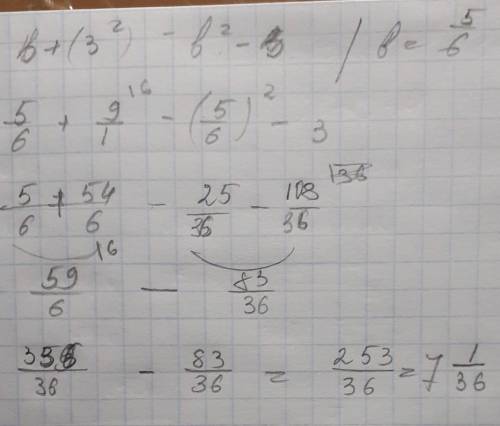 b + (3²) - b² - 3 / b = 5/6
5/6 + 9/1 |6 - (5/6)² - 3
5/6 + 54/6 - 25/36 - 108/36 |36
59/6 |6 — 83/36
336/36 - 83/36 = 253/36 = 7 1/36